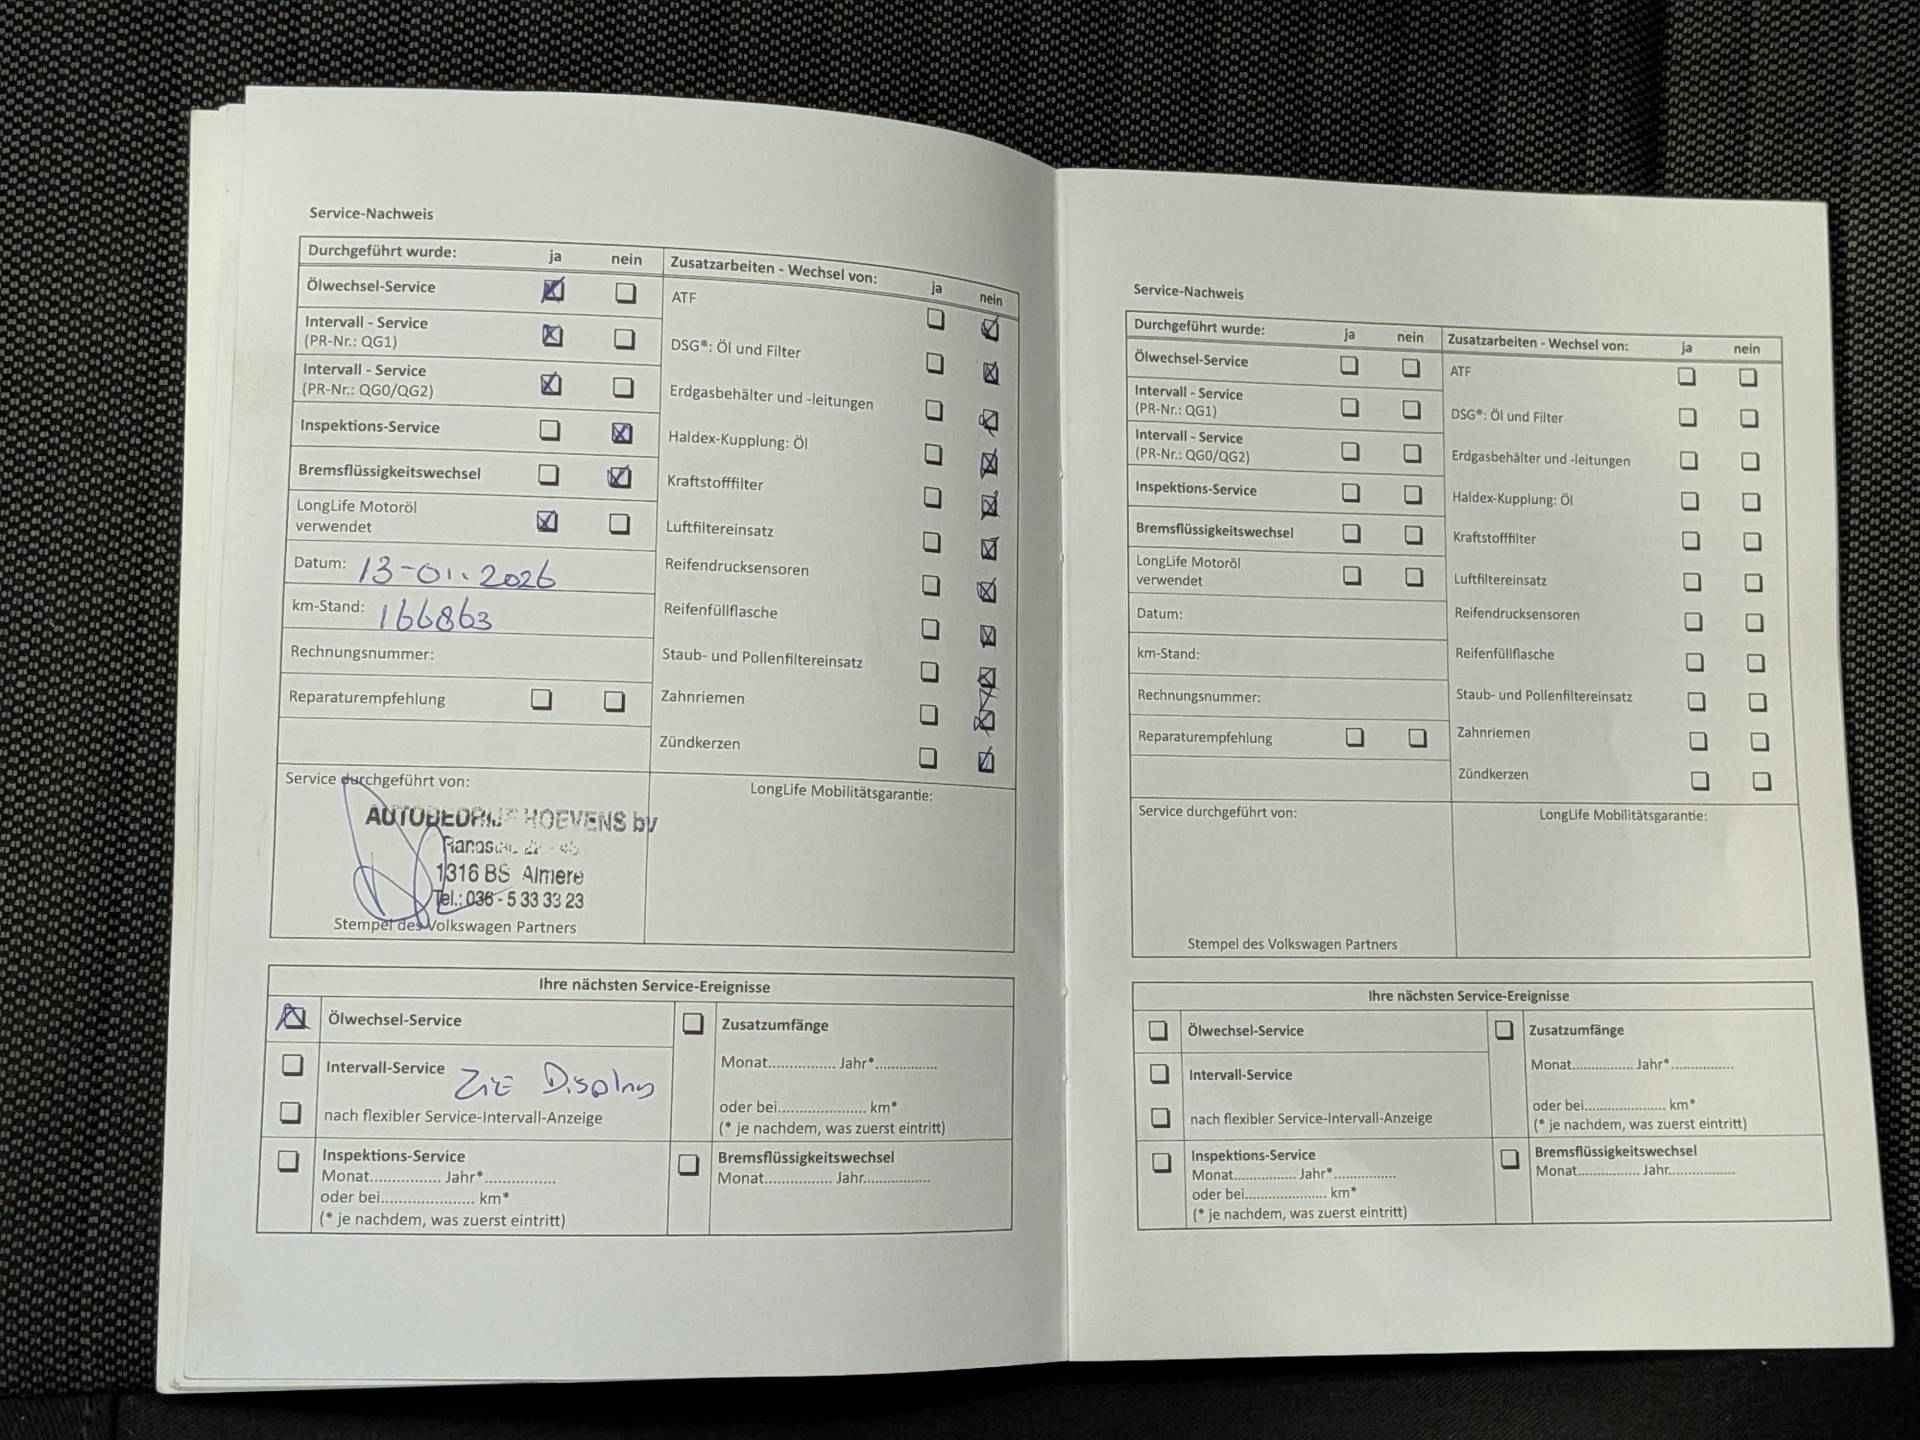 Service-Nachweis
Durchgeführt wurde: ja nein
Ölwechsel-Service
Intervall - Service
(PR-Nr.: QG1)
Intervall - Service
(PR-Nr.: QG0/QG2)
Inspektions-Service
Bremsflüssigkeitswechsel
LongLife Motoröl
verwendet
Datum: 13-01.2026
km-Stand: 166863
Rechnungsnummer:
Reparaturempfehlung
Zusatzarbeiten - Wechsel von: ja nein
ATF
DSG®: Öl und Filter
Erdgasbehälter und -leitungen
Haldex-Kupplung: Öl
Kraftstofffilter
Luftfiltereinsatz
Reifendrucksensoren
Reifenfüllflasche
Staub- und Pollenfiltereinsatz
Zahnriemen
Zündkerzen
Service durchgeführt von:
AUTOBEDRIJF HOEVENS bv
1316 BS Almere
Tel.: 036 - 5 33 33 23
Stempel des Volkswagen Partners
LongLife Mobilitätsgarantie:
Ihre nächsten Service-Ereignisse
Ölwechsel-Service
Intervall-Service
Zie Display
nach flexibler Service-Intervall-Anzeige
Inspektions-Service
Monat................ Jahr*................
oder bei...................... km*
(* je nachdem, was zuerst eintritt)
Zusatzumfänge
Monat................ Jahr*...............
oder bei...................... km*
(* je nachdem, was zuerst eintritt)
Bremsflüssigkeitswechsel
Monat................ Jahr................
Service-Nachweis
Durchgeführt wurde: ja nein
Ölwechsel-Service
Intervall - Service
(PR-Nr.: QG1)
Intervall - Service
(PR-Nr.: QG0/QG2)
Inspektions-Service
Bremsflüssigkeitswechsel
LongLife Motoröl
verwendet
Datum:
km-Stand:
Rechnungsnummer:
Reparaturempfehlung
Zusatzarbeiten - Wechsel von: ja nein
ATF
DSG®: Öl und Filter
Erdgasbehälter und -leitungen
Haldex-Kupplung: Öl
Kraftstofffilter
Luftfiltereinsatz
Reifendrucksensoren
Reifenfüllflasche
Staub- und Pollenfiltereinsatz
Zahnriemen
Zündkerzen
Service durchgeführt von:
Stempel des Volkswagen Partners
LongLife Mobilitätsgarantie:
Ihre nächsten Service-Ereignisse
Ölwechsel-Service
Intervall-Service
nach flexibler Service-Intervall-Anzeige
Inspektions-Service
Monat................ Jahr*................
oder bei...................... km*
(* je nachdem, was zuerst eintritt)
Zusatzumfänge
Monat................ Jahr*................
oder bei...................... km*
(* je nachdem, was zuerst eintritt)
Bremsflüssigkeitswechsel
Monat................ Jahr.................